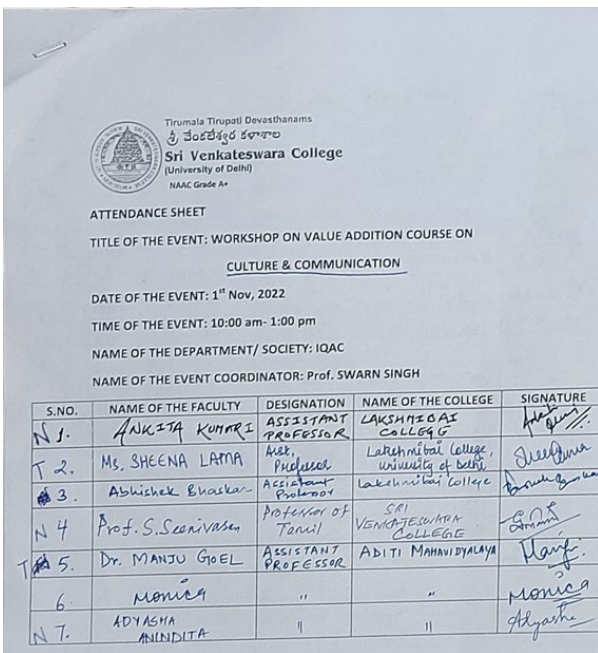 Tirumala Tirupati Devasthanams
శ్రీ వేంకటేశ్వర కళాశాల
Sri Venkateswara College
(University of Delhi)
NAAC Grade A+
ATTENDANCE SHEET
TITLE OF THE EVENT: WORKSHOP ON VALUE ADDITION COURSE ON
CULTURE & COMMUNICATION
DATE OF THE EVENT: 1st Nov, 2022
TIME OF THE EVENT: 10:00 am- 1:00 pm
NAME OF THE DEPARTMENT/ SOCIETY: IQAC
NAME OF THE EVENT COORDINATOR: Prof. SWARN SINGH
S.NO. NAME OF THE FACULTY DESIGNATION NAME OF THE COLLEGE SIGNATURE
N 1. ANKITA KUMARI ASSISTANT PROFESSOR LAKSHMIBAI COLLEGE
T 2. Ms. SHEENA LAMA Asst. Professor Lakshmibai College, University of Delhi
3. Abhishek Bhaskar Assistant Professor Lakshmibai College
N 4 Prof. S. Seenivasan Professor of Tamil SRI VENKATESWARA COLLEGE
T 5. Dr. MANJU GOEL ASSISTANT PROFESSOR ADITI MAHAVIDYALAYA Manju
6. Monica " " Monica
N 7. ADYASHA ANINDITA " " Adyasha